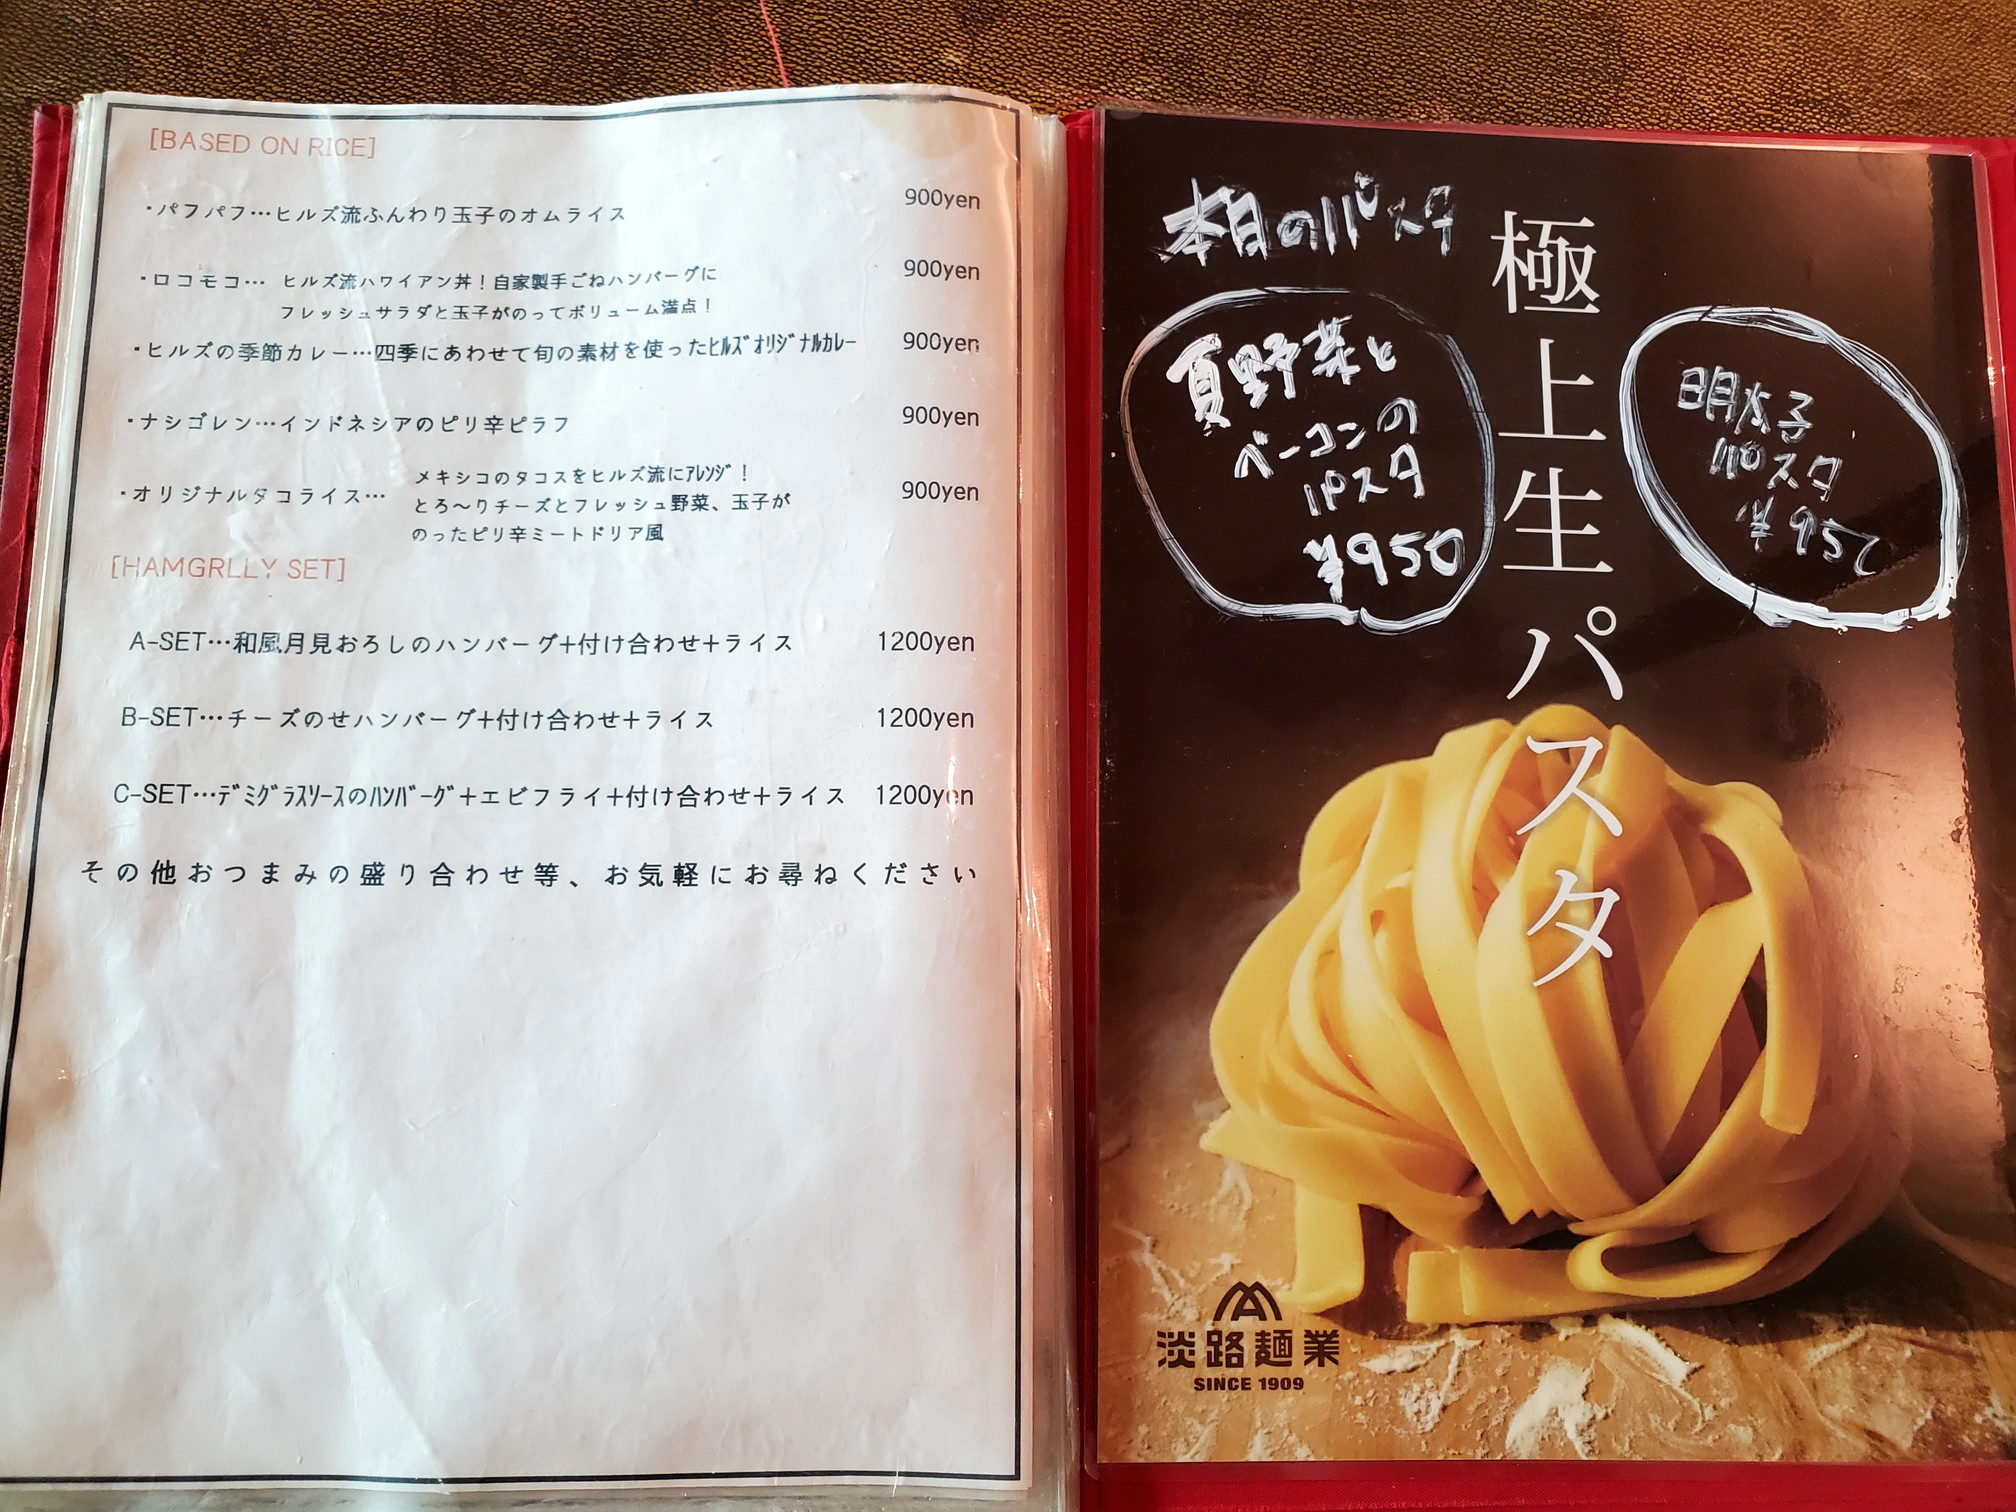 [BASED ON RICE]
・パフパフ…ヒルズ流ふんわり玉子のオムライス 900yen
・ロコモコ… ヒルズ流ハワイアン丼！自家製手ごねハンバーグに 900yen
フレッシュサラダと玉子がのってボリューム満点！
・ヒルズの季節カレー…四季にあわせて旬の素材を使ったﾋﾙｽﾞｵﾘｼﾞﾅﾙｶﾚｰ 900yen
・ナシゴレン…インドネシアのピリ辛ピラフ 900yen
・オリジナルタコライス… メキシコのタコスをヒルズ流にｱﾚﾝｼﾞ！ 900yen
とろ〜りチーズとフレッシュ野菜、玉子が
のったピリ辛ミートドリア風
[HAMGRLLY SET]
A-SET…和風月見おろしのハンバーグ+付け合わせ+ライス 1200yen
B-SET…チーズのせハンバーグ+付け合わせ+ライス 1200yen
C-SET…ﾃﾞﾐｸﾞﾗｽｿｰｽのﾊﾝﾊﾞｰｸﾞ+エビフライ+付け合わせ+ライス 1200yen
その他おつまみの盛り合わせ等、お気軽にお尋ねください
本日のパスタ
夏野菜と
ベーコンの
パスタ
¥950
極上生パスタ
明太子
パスタ
¥950
淡路麺業
SINCE 1909